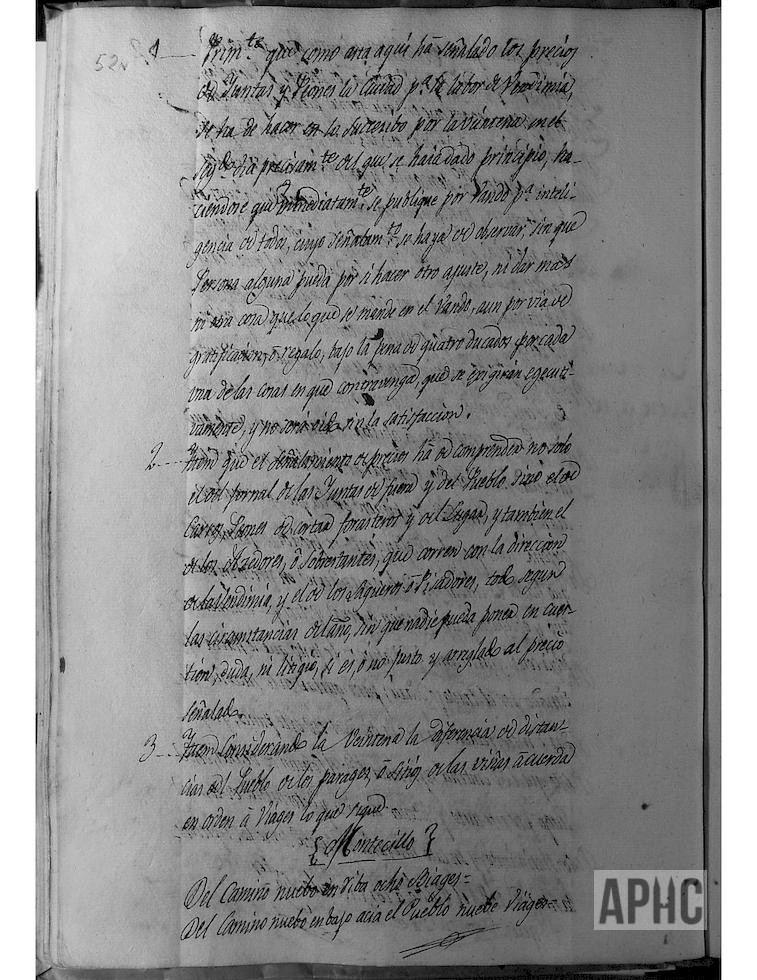 52v
1 Prim.te que como asta aqui ha señalado los precios
de Juntas y Peones la Ciudad p.a la labor de Vendimia,
se ha de hacer en lo subcesibo por la veintena en el
seg.do dia precisam.te del que se haia dado principio, ha-
ciendose que inmediatam.te se publique por Vando p.a inteli-
gencia de todos, cuyo señalam.to se haya de observar, sin que
Persona alguna pueda por si hacer otro ajuste, ni dar mas
ni otra cosa que lo que se mande en el Vando, aun por via de
gratificacion, ó regalo, bajo la pena de quatro ducados por cada
vna de las cosas en que contravenga, que se exigiran egecuti-
vamente, y no será oido sin la satisfaccion.
2 Item que el señalamiento de precios ha de comprender no solo
el del Jornal de las Juntas de fuera y del Pueblo sino el de
Carros, Peones de cortar forasteros y del Lugar, y tambien el
de los obradores, ó sobrestantes, que corren con la direccion
de las Vendimia, y el de los Lagueros ó Pisadores, todo segun
las circunstancias del año, sin que nadie pueda poner en cues-
tion, duda, ni litigio, si es, ó no justo y arreglado al precio
señalado.
3 Item Considerando la Veintena la diferencia de distan-
cias del Pueblo de los parages, ó sitios de las viñas acuerda
en orden á Viages lo que sigue.
Montecillo
Del Camino nuebo en riba ocho Biages=
Del Camino nuebo en bajo acia el Pueblo nuebe Viages=
APHC